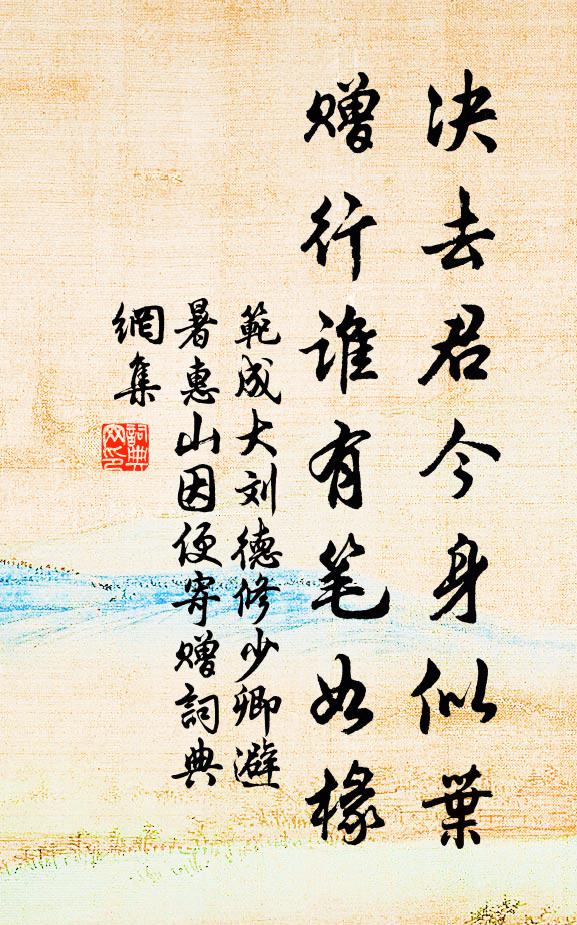 决去君今身似葉
赠行谁有笔如椽
範成大刘德修少卿避
暑惠山因便寄赠詞典
網集
詞典
文印